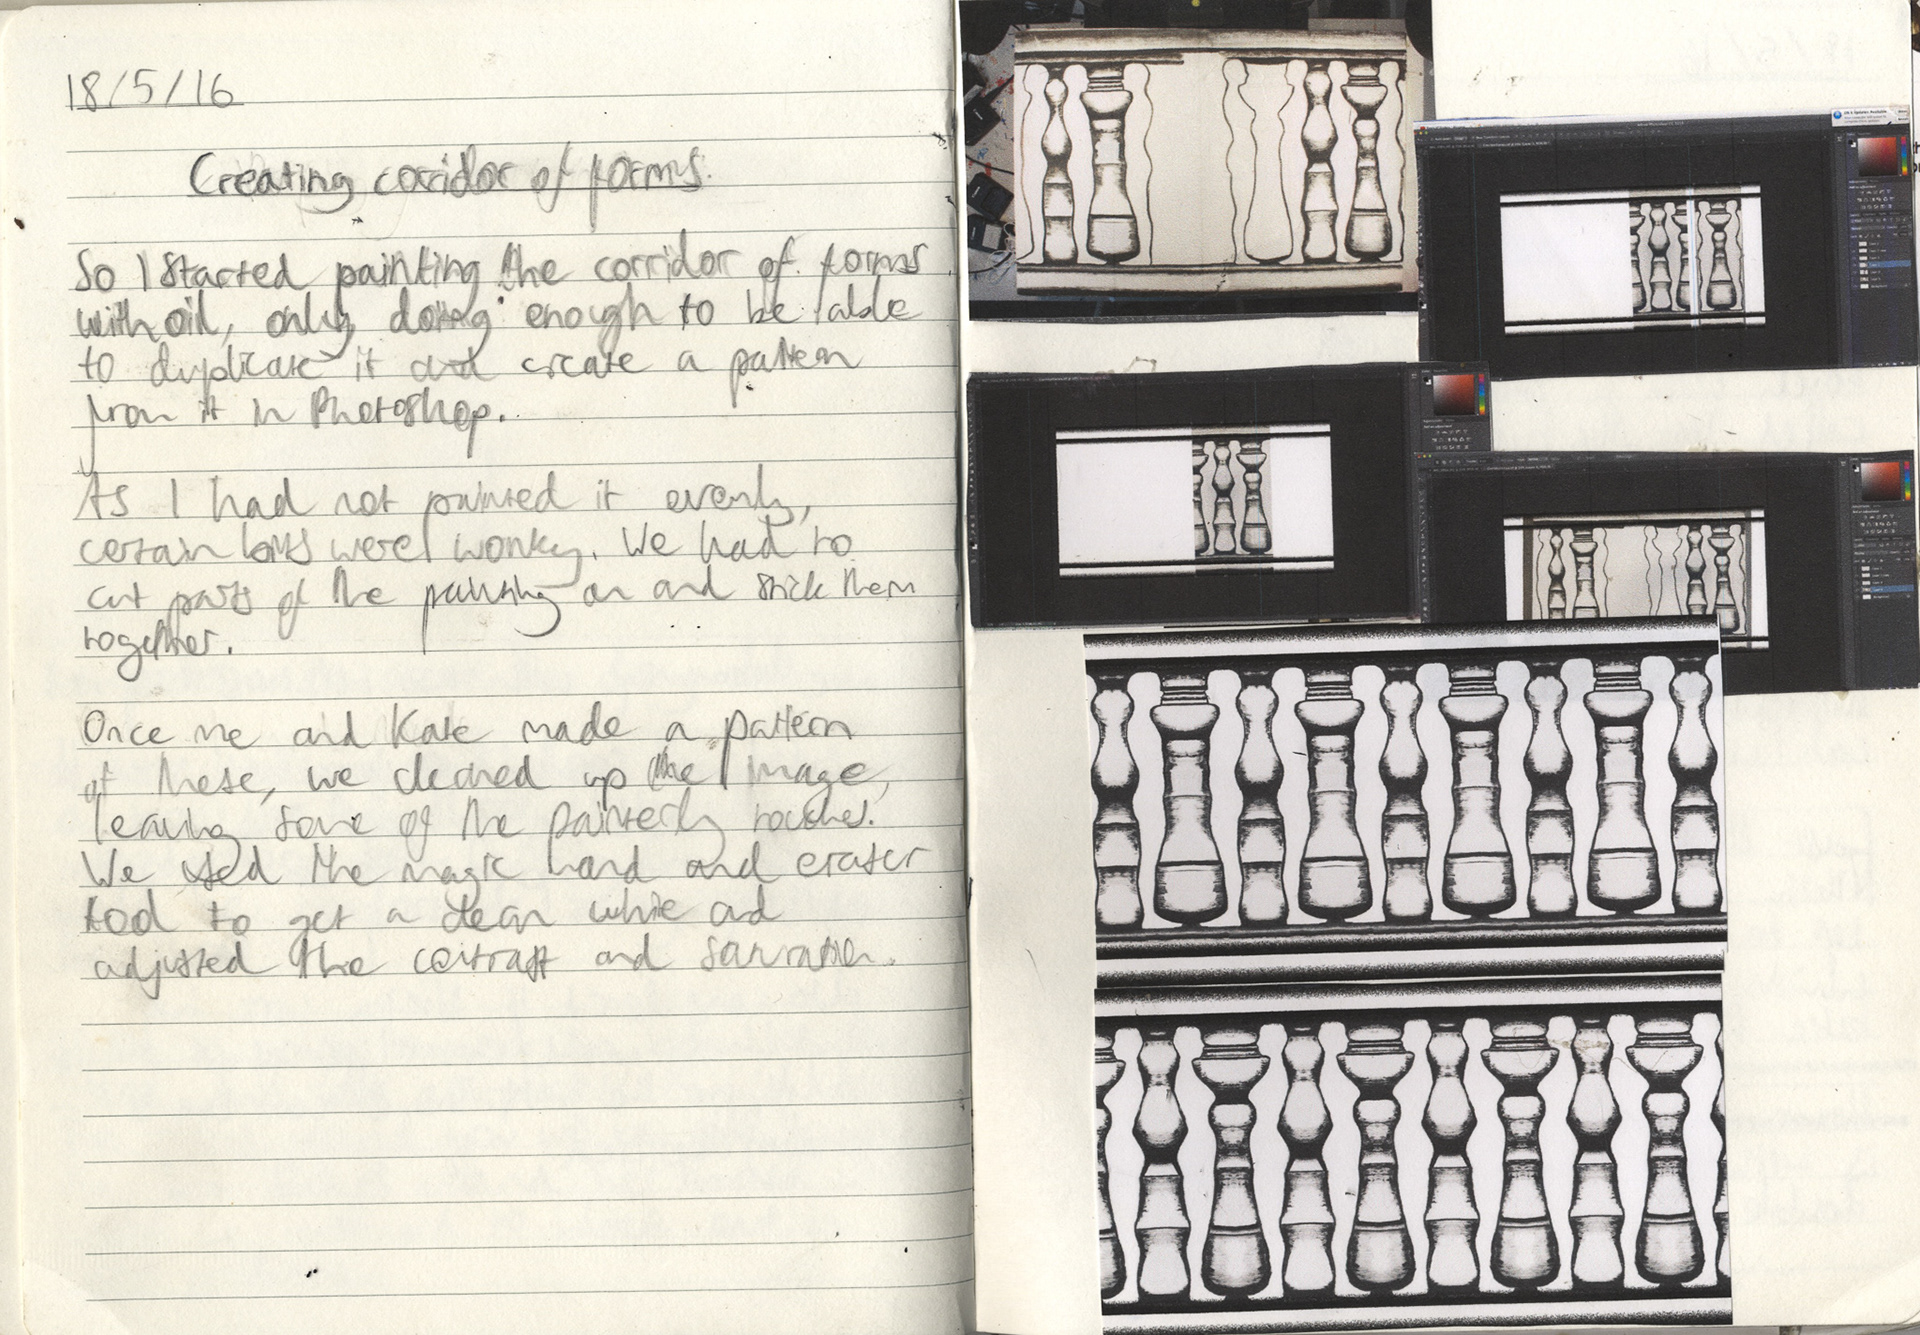 18/5/16
Creating corridor of forms.
So I started painting the corridor of forms
with oil, only doing enough to be able
to duplicate it and create a pattern
from it in Photoshop.
As I had not painted it evenly,
certain bits were wonky. We had to
cut parts of the painting on and stick them
together.
Once me and Kate made a pattern
of these, we cleaned up the image,
leaving some of the painterly touches.
We used the magic wand and eraser
tool to get a clean white and
adjusted the contrast and saturation.